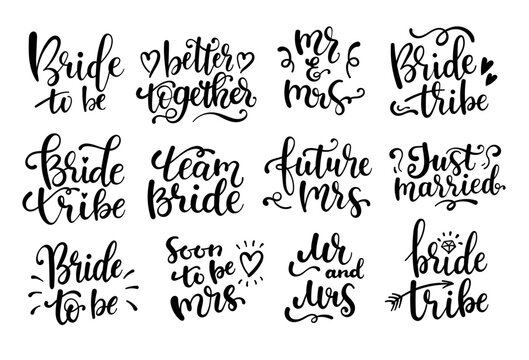 Bride
to be
better
together
Mr
&
Mrs
Bride
tribe
Bride
tribe
team
Bride
future
Mrs
Just
married
Bride
to be
Soon
to be
mrs
Mr
and
Mrs
bride
tribe